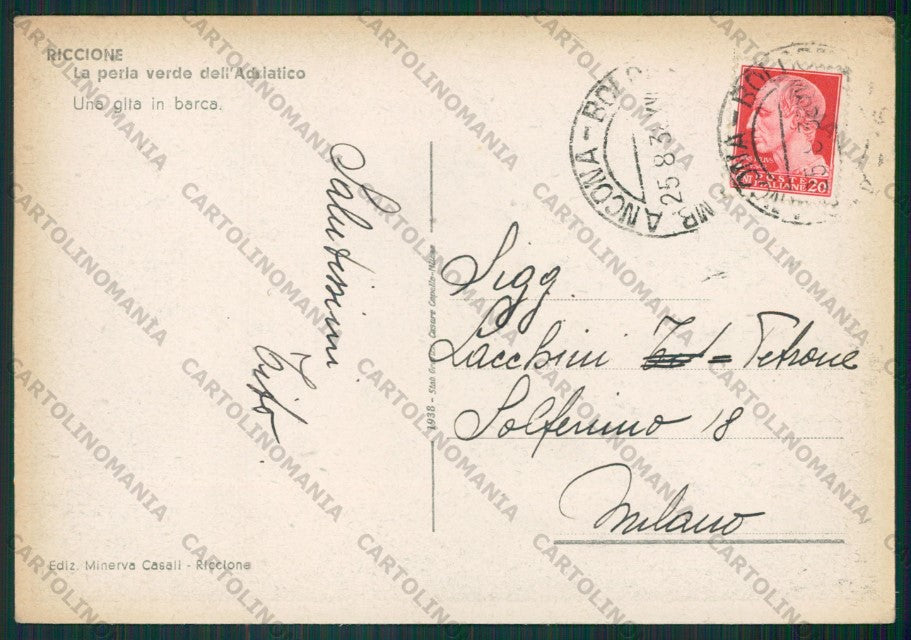 RICCIONE
La perla verde dell'Adriatico
Una gita in barca.
Salutissimi
Tito
1938 - Stab Graf. Cesare Capello-Milano
Ediz. Minerva Casali - Riccione
ANCONA-BOLO
25 8 3
POSTE
ITALIANE 20
Sigg.
Lacchini Petrone
Solferino 18
Milano
CARTOLINOMANIA